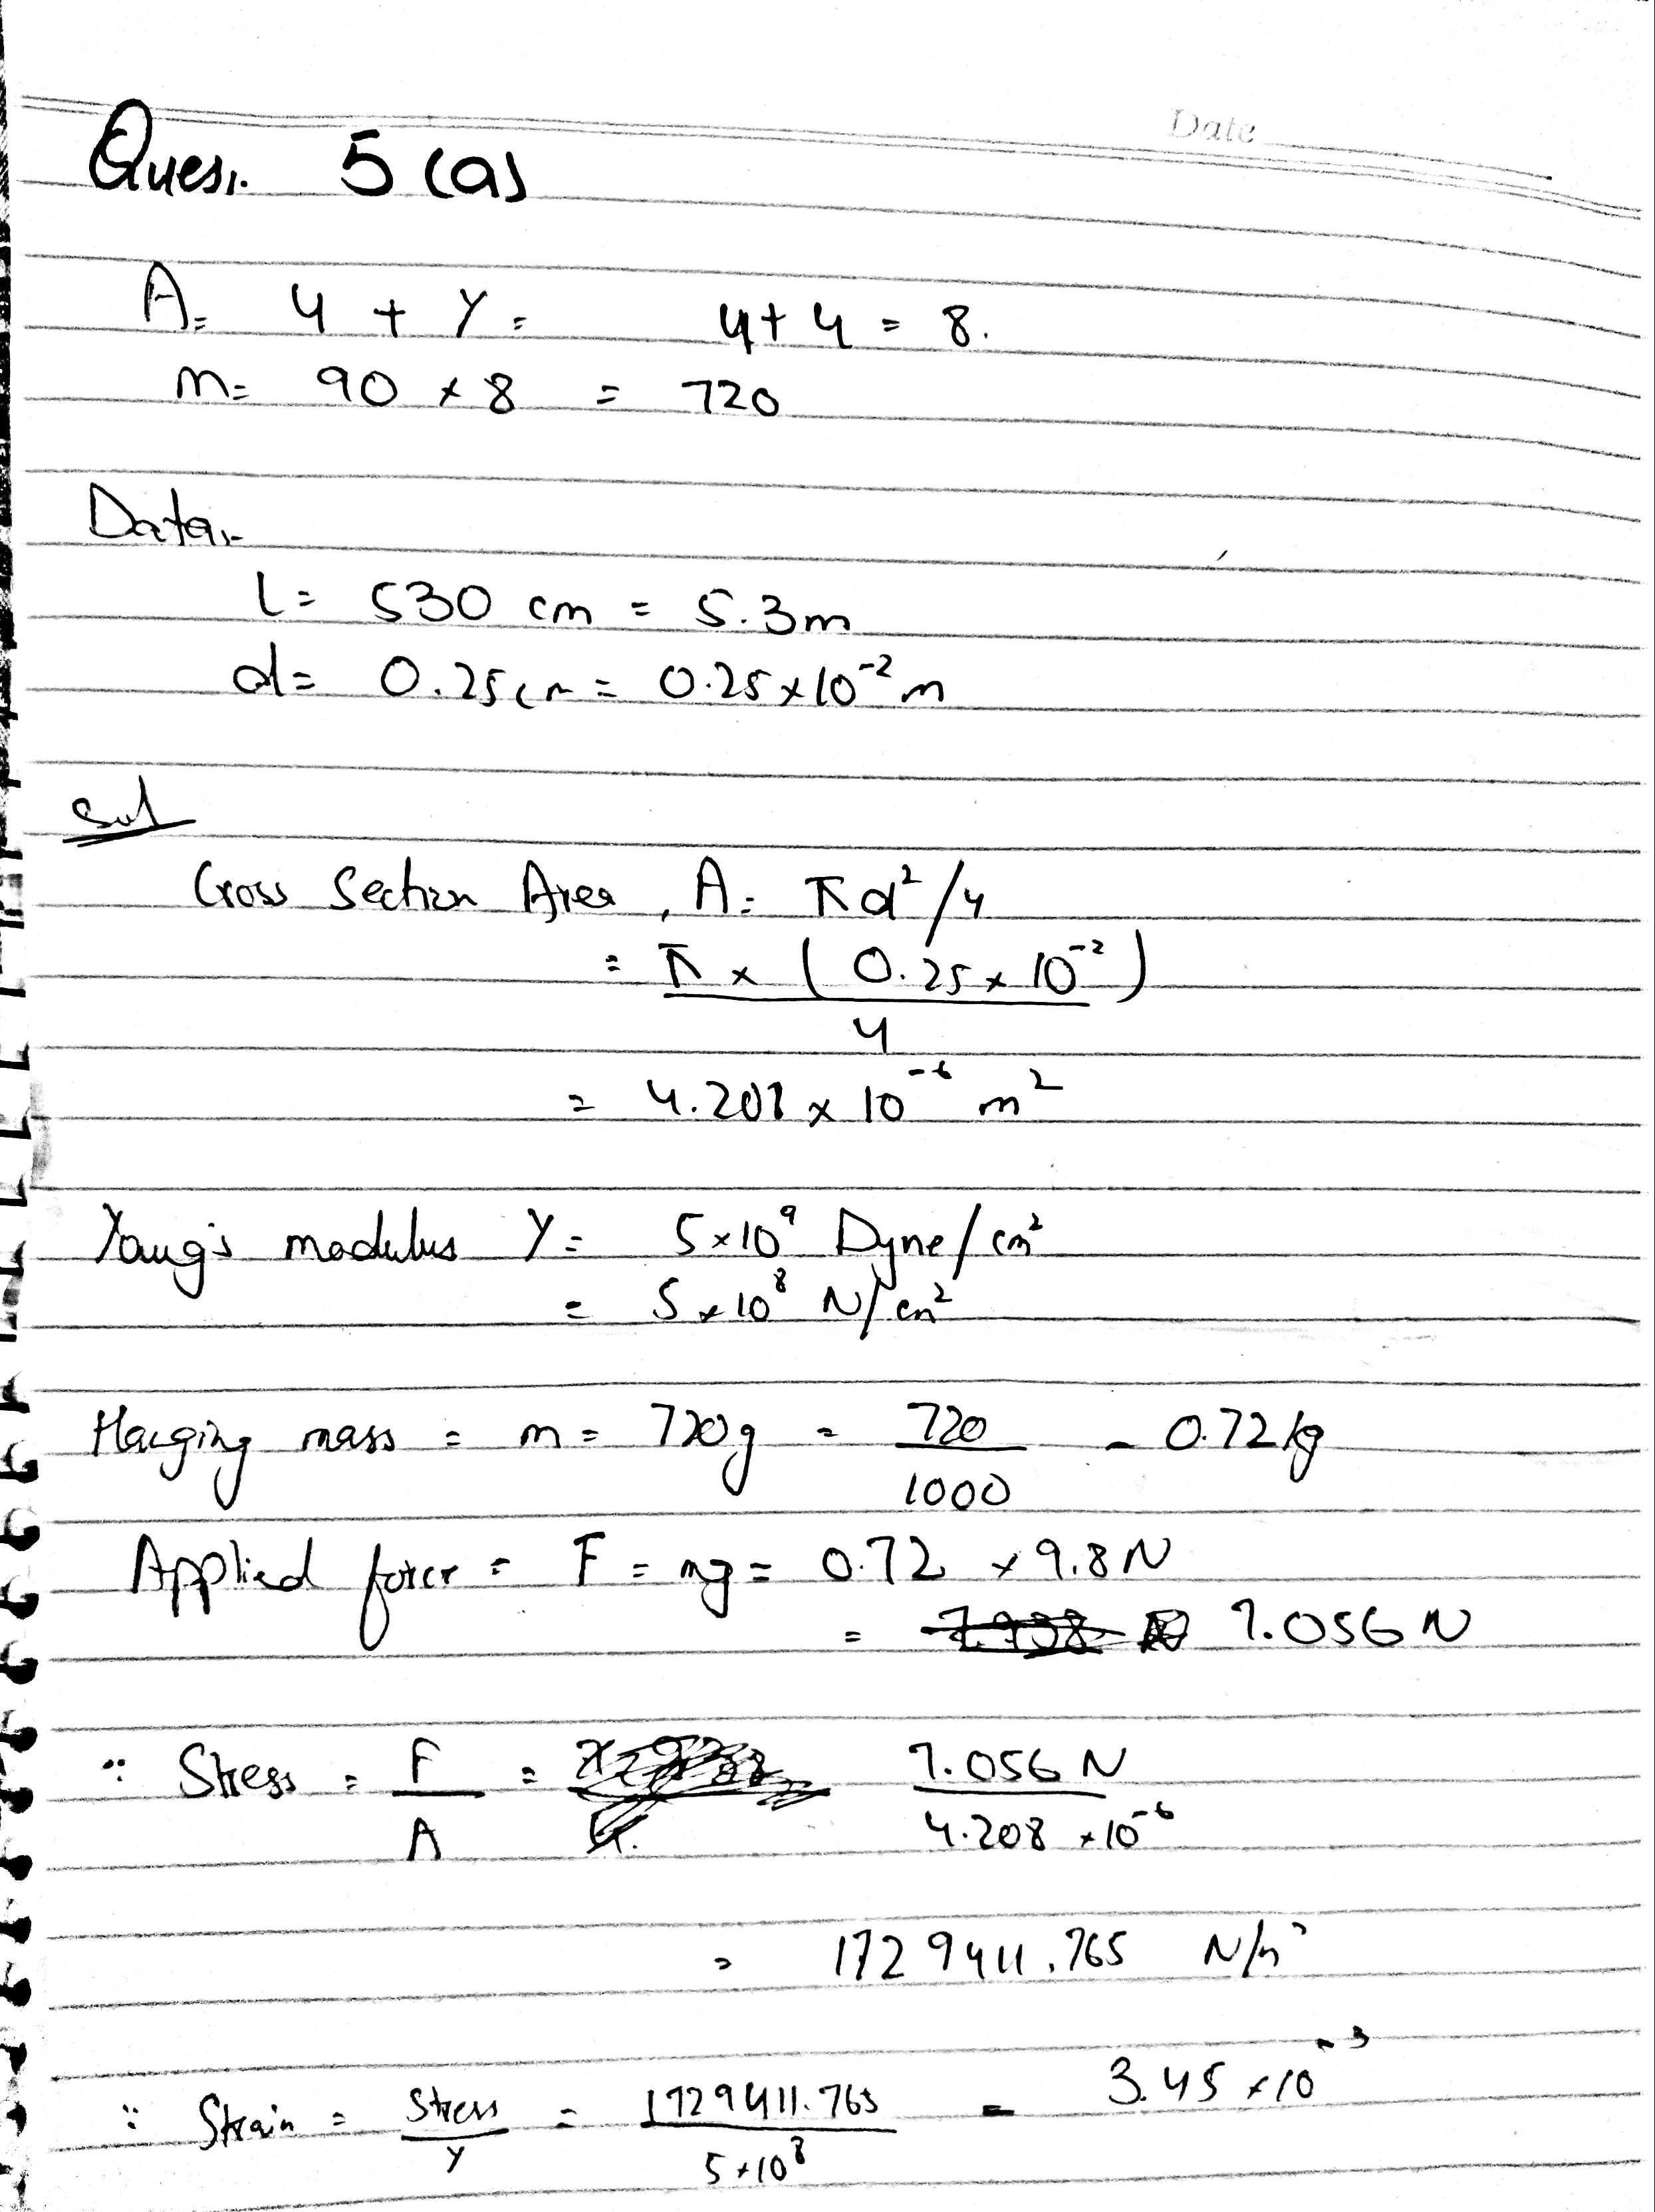 Date
Ques:. 5 (a)
A = 4 + Y = 4+4 = 8.
m = 90 × 8 = 720
Data:-
l = 530 cm = 5.3m
d = 0.25cm = 0.25×10⁻² m
Sol
Cross Section Area, A = πd²/4
= π × (0.25 × 10⁻²)
4
= 4.208 × 10⁻⁶ m²
Young's modulus Y = 5×10⁹ Dyne/cm²
= 5×10⁸ N/cm²
Hanging mass = m = 720g = 720 = 0.72kg
1000
Applied force = F = mg = 0.72 × 9.8N
= 7.056 N
∵ Stress = F = 7.056 N
A 4.208 × 10⁻⁶
= 1729411.765 N/m²
∵ Strain = Stress = 1729411.765 = 3.45 × 10⁻³
Y 5×10⁸